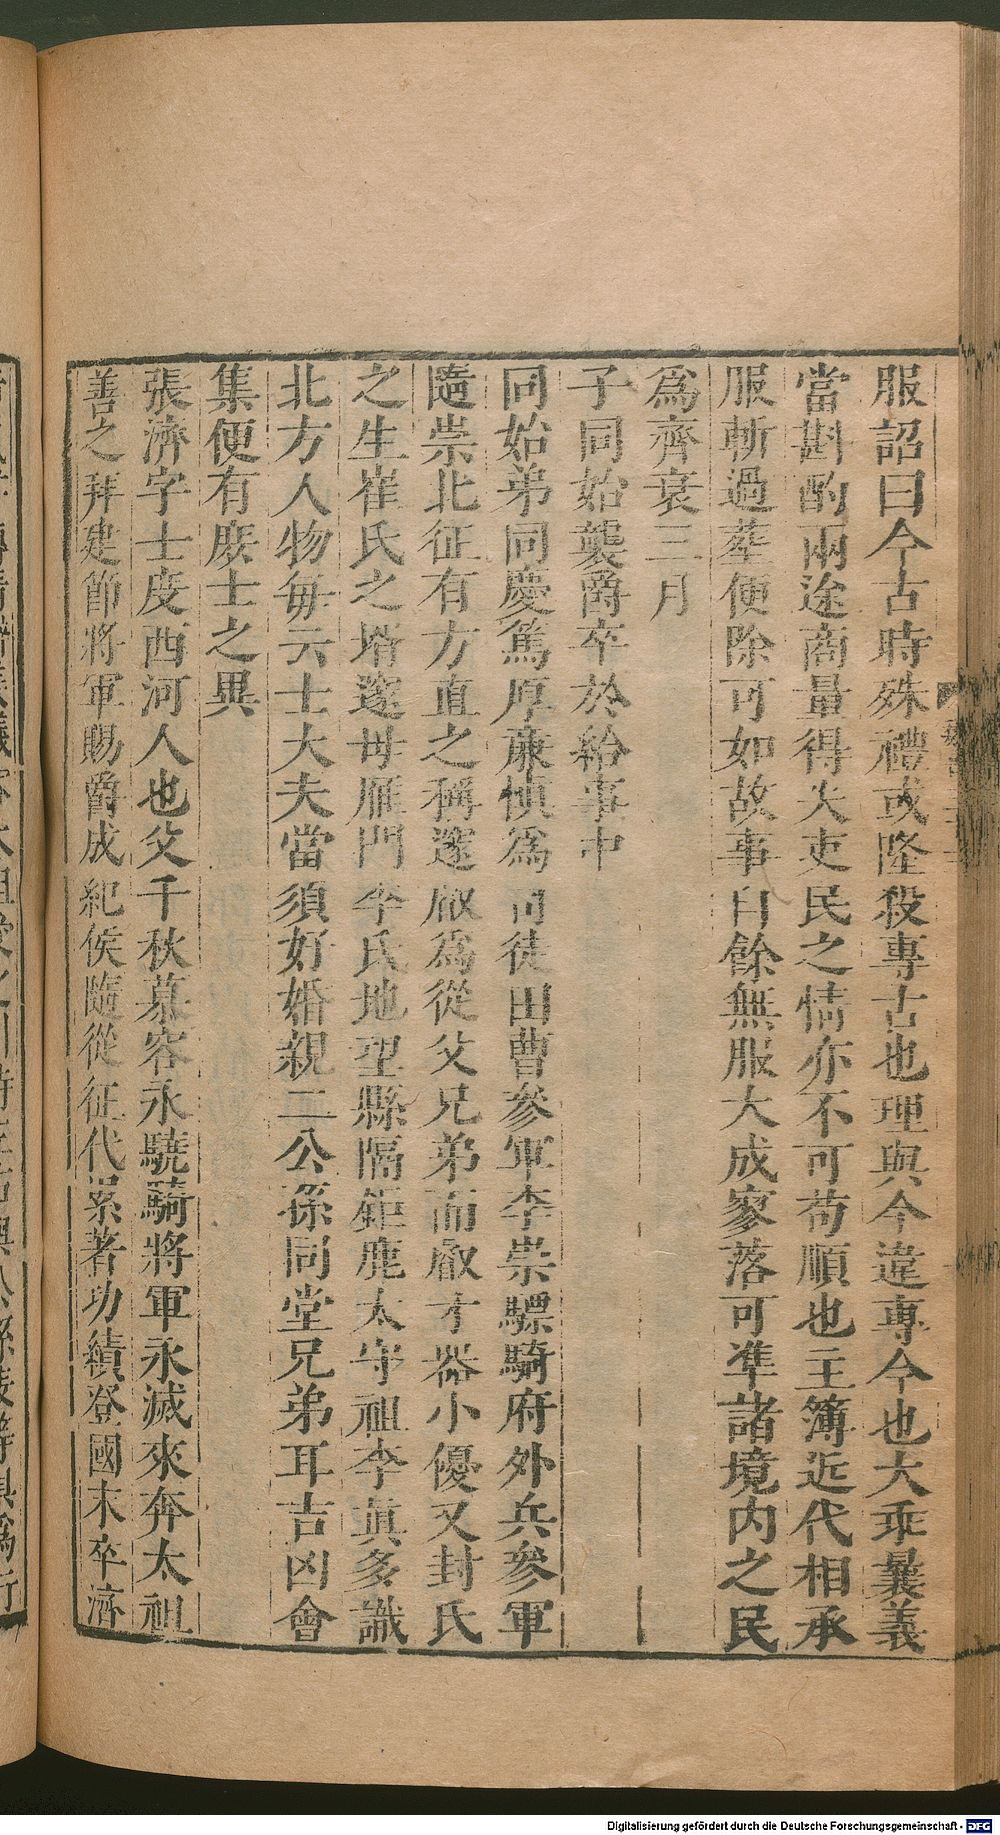 服詔曰今古時殊禮或隆殺專古也理與今違專今也大乖曩義
當斟酌兩途商量得失吏民之情亦不可苟順也主簿近代相承
服斬過葬便除可如故事自餘無服大成寥落可準諸境内之民
為齊衰三月
子同始襲爵卒於給事中
同始弟同慶篤厚廉慎為司徒田曹參軍李崇驃騎府外兵參軍
隨崇北征有方直之稱邃叡為從父兄弟而叡才器小優又封氏
之生崔氏之壻邃母雁門李氏地望縣隔鉅鹿太守祖季真多識
北方人物每云士大夫當須好婚親二公孫同堂兄弟耳吉凶會
集便有庶士之異
張濟字士度西河人也父千秋慕容永驍騎將軍永滅來奔太祖
善之拜建節將軍賜爵成紀侯隨從征代累著功績登國末卒濟
Digitalisierung gefördert durch die Deutsche Forschungsgemeinschaft - DFG